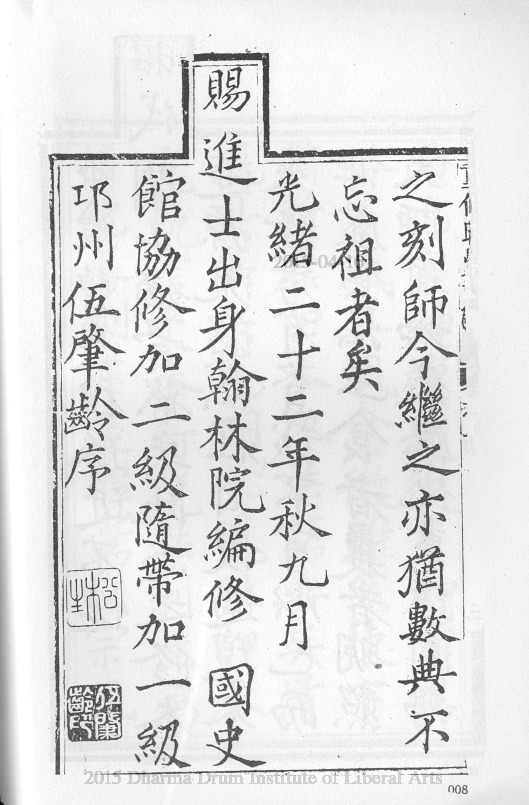 之刻師今繼之亦猶數典不
忘祖者矣
光緒二十二年秋九月
賜進士出身翰林院編修 國史
館協修加二級隨帶加一級
邛州伍肇齡序
伍肇齡印
2015 Dharma Drum Institute of Liberal Arts
008